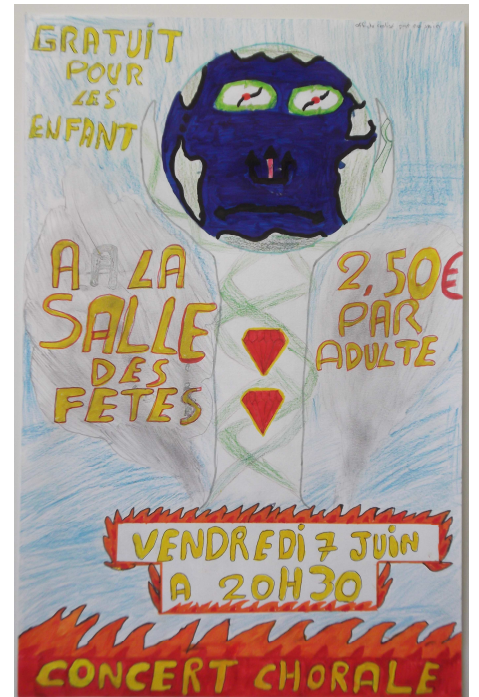 GRATUIT
POUR
LES
ENFANT
A A LA
SALLE
DES
FETES
2,50€
PAR
ADULTE
VENDREDI 7 JUIN
A 20H30
CONCERT CHORALE